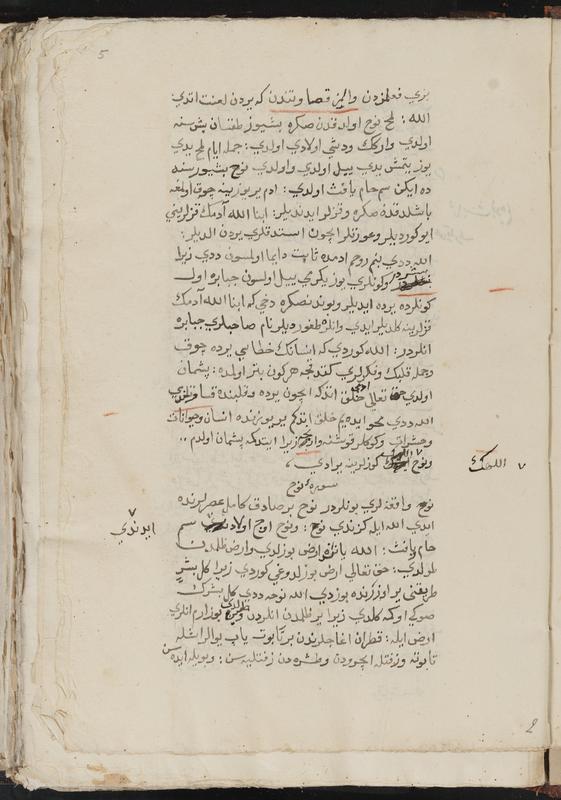 5
بزي فعلمزدن والمز قصاوتندن كه يردن لعنت اتدي
الله : لمخ نوح اولدقدن صكره بشيوز طقسان بش سنه
اولدي واركك وديشي اولادي اولدي : جمله ايام لمخ يدي
يوز يتمش يدي ييل اولدي واولدي ونوح بشيوز سنه
ده ايكن سم حام يافث اولدي : ادم ير يوزينه چوق اولمغه
باشلدقدن صكره وقزلر ايدنديلر : ابنا الله آدمك قزلريني
ايو كورديلر وعورتلر ايچون استدقلري يردن الديلر :
الله ددي بنم روحم ادمده ثابت دايما اولمسون ددي زيرا
بشردر وكونلري يوز يكرمي ييل اولسون جبابره اول
كونلرده يرده ايديلر وبوندنصكره دخي كه ابنا الله آدمك
قزلرينه كلديلر ايدي وانلره طغورديلر نام صاحبلري جبابره
انلردر : الله كوردي كه انسانك خطاسي يرده چوق
وجمله قلبك وفكرلري كقدتجه هر كون بتر اولده : پشمان
اولدي حق تعالي خلق اتدكه ايچون يرده وقلبنده
الله ددي محو ايده يم خلق اتدكم ير يوزنده انسان وحيوانات
وحشرات وكوكلر قوشنه وارنجه زيرا ايتدكمه پشمان اولدم
ونوح كوزلرينه يرادي
اللهك
سوره نوح
نوح واقعه لري بونلردر نوح بر صادق كامل عصرلرنده
ايدي الله ايله كزندي نوح : ونوح اوچ اولاد سم
ايدندي
حام يافث : الله ياننده ارض بوزلدي وارض ظلمدن
طولدي : حق تعالي ارض بوزلدوغي كوردي زيرا كل بشر
طريقني ير اوزرنده بوزدي الله نوحه ددي كل بشرك
صوكي اوكمه كلدي زيرا ير ظلمدن انلردن طولدي بوزارم انلري
ارض ايله : قطران اغاجلرندن بر تابوت ياپ يوالر اشله
تابوته وزفتله ايچرودن وطشره دن زفتليه سن : وبويله ايده سن
2